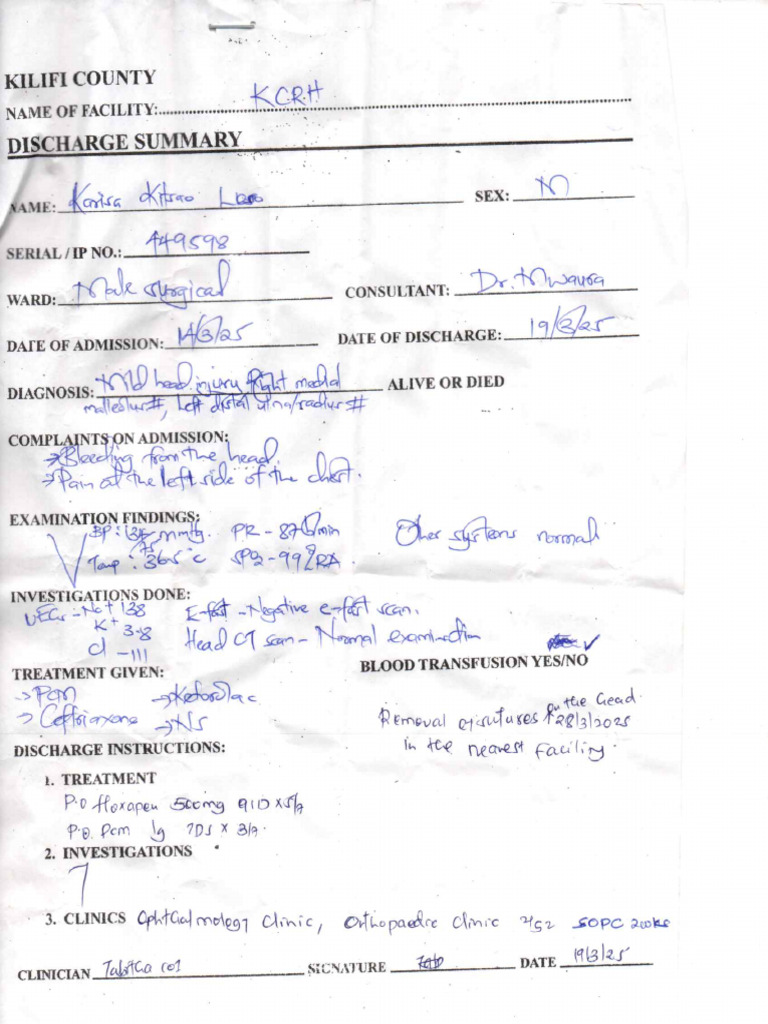 KILIFI COUNTY
NAME OF FACILITY: KCRH
DISCHARGE SUMMARY
NAME: Karisa Kitsao SEX: M
SERIAL / IP NO.: 449598
WARD: Male surgical CONSULTANT: Dr. Mwaura
DATE OF ADMISSION: 14/3/25 DATE OF DISCHARGE: 19/3/25
DIAGNOSIS: Mild head injury, Right medial ALIVE OR DIED
malleolus #, Left distal ulna/radius #
COMPLAINTS ON ADMISSION:
→ Bleeding from the head.
→ Pain at the left side of the chest.
EXAMINATION FINDINGS:
BP: 135/75 mmHg. PR - 87 b/min Other systems normal
Temp: 36.5 °c SPO2 - 99% RA
INVESTIGATIONS DONE:
UECs - Na+ 138 E-fast - Negative e-fast scan.
K+ 3.8 Head CT scan - Normal examination
Cl - 111
BLOOD TRANSFUSION YES/NO
TREATMENT GIVEN:
→ PCM → Ketorolac
→ Ceftriaxone → NS
Removal of sutures on the head
28/3/2025
in the nearest facility.
DISCHARGE INSTRUCTIONS:
1. TREATMENT
P.O floxapen 500mg QID x 5/7
P.O. Pcm 1g TDS x 3/7.
2. INVESTIGATIONS
3. CLINICS Ophthalmology Clinic, Orthopaedic Clinic SOPC
CLINICIAN Tabitha COI SIGNATURE DATE 19/3/25